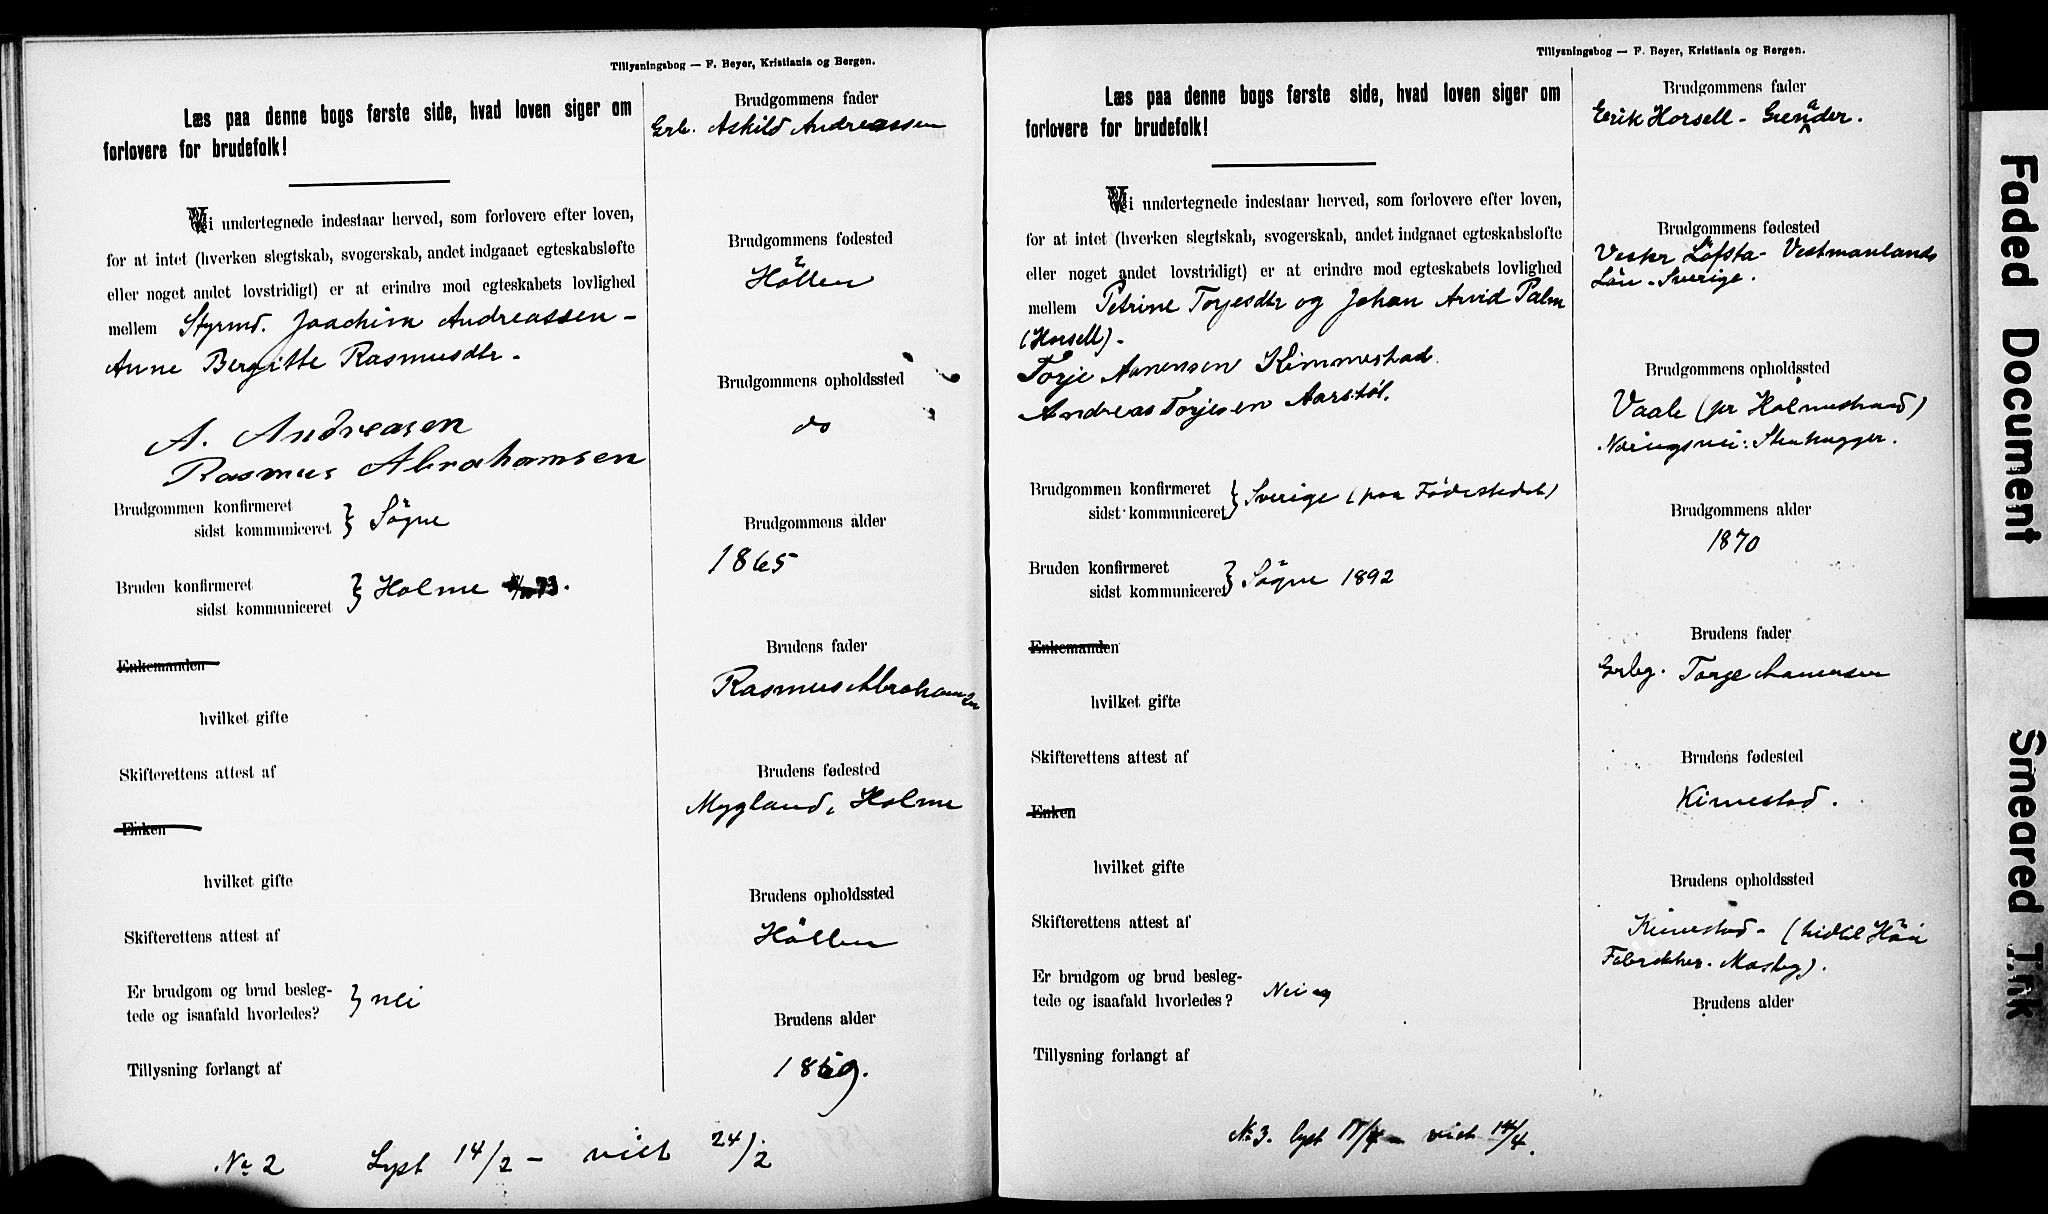 Tillysningsbog — F. Beyer, Kristiania og Bergen.
Læs paa denne bogs første side, hvad loven siger om
forlovere for brudefolk!
Vi undertegnede indestaar herved, som forlovere efter loven,
for at intet (hverken slegtskab, svogerskab, andet indgaaet egteskabsløfte
eller noget andet lovstridigt) er at erindre mod egteskabets lovlighed
mellem Styrmd. Joachim Andreassen –
Anne Bergitte Rasmusdtr.
A. Andreasen
Rasmus Abrahamsen
Brudgommen konfirmeret
sidst kommuniceret } Søgne
Bruden konfirmeret
sidst kommuniceret } Holme
Enkemanden
hvilket gifte
Skifterettens attest af
Enken
hvilket gifte
Skifterettens attest af
Er brudgom og brud besleg-
tede og isaafald hvorledes? } nei
Tillysning forlangt af
Brudgommens fader
Grb. Askild Andreassen
Brudgommens fødested
Höllen
Brudgommens opholdssted
do
Brudgommens alder
1865
Brudens fader
Rasmus Abrahamsen
Brudens fødested
Mygland, Holme
Brudens opholdssted
Höllen
Brudens alder
1869.
No 2 Lyst 14/2 – viet 24/2
Tillysningsbog — F. Beyer, Kristiania og Bergen.
Læs paa denne bogs første side, hvad loven siger om
forlovere for brudefolk!
Vi undertegnede indestaar herved, som forlovere efter loven,
for at intet (hverken slegtskab, svogerskab, andet indgaaet egteskabsløfte
eller noget andet lovstridigt) er at erindre mod egteskabets lovlighed
mellem Petrine Torjesdtr og Johan Arvid Palm
(Horsell) –
Torje Aanensen Kimmestad
Andreas Torjesen Aarstøl.
Brudgommen konfirmeret
sidst kommuniceret } Sverige (paa Fødestedet)
Bruden konfirmeret
sidst kommuniceret } Søgne 1892
Enkemanden
hvilket gifte
Skifterettens attest af
Enken
hvilket gifte
Skifterettens attest af
Er brudgom og brud besleg-
tede og isaafald hvorledes? Nei
Tillysning forlangt af
Brudgommens fader
Erik Horsell –
Brudgommens fødested
Vester Löfsta – Vestmanlands
Län – Sverige.
Brudgommens opholdssted
Vaale (pr Holmestrand)
Næringsvei: Stenhugger.
Brudgommens alder
1870
Brudens fader
Grbg. Torje Aanensen
Brudens fødested
Kimestad.
Brudens opholdssted
Kimestad – (hidtil Høie
Fabrikker – Mosby).
Brudens alder
No 3. lyst 17/4 – viet 14/4.
Faded Document
Smeared Ink